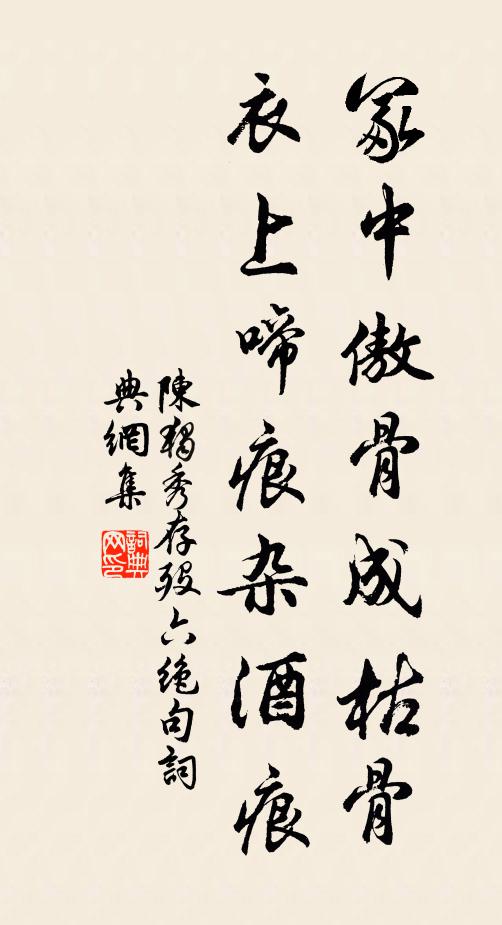 冢中傲骨成枯骨
衣上啼痕杂酒痕
陳獨秀存殁六绝句詞
典網集
詞典网印